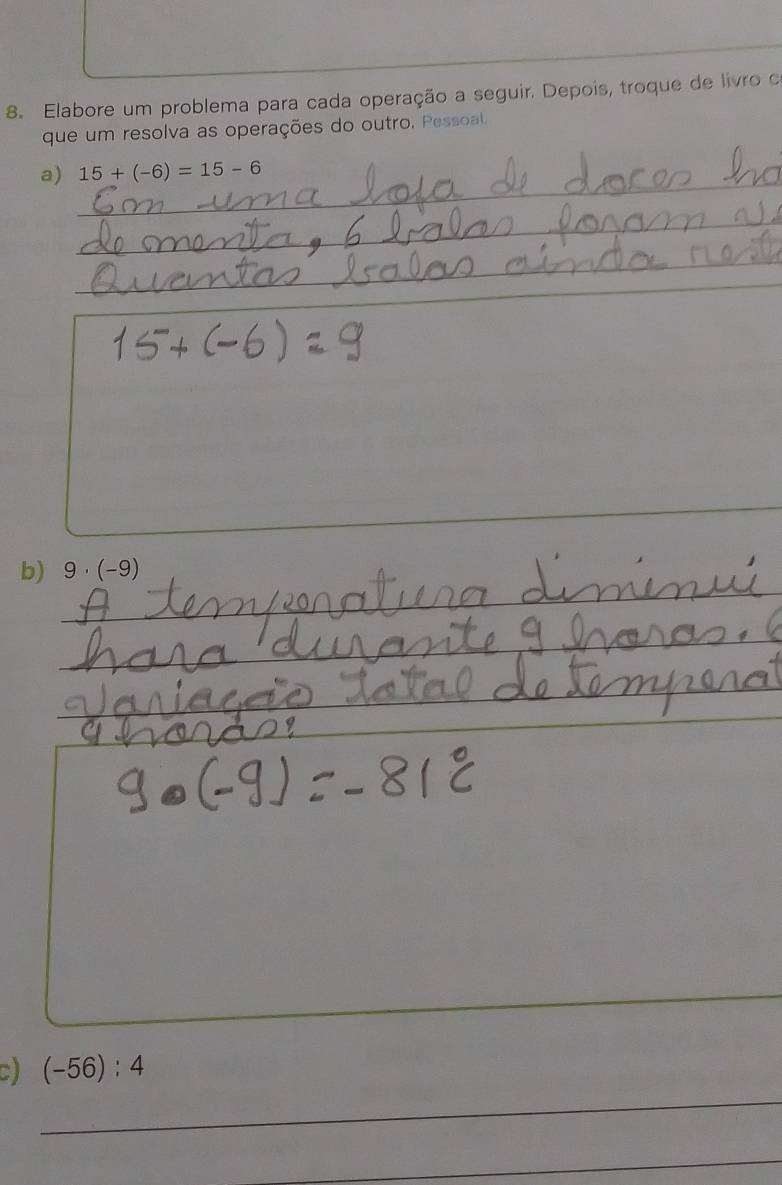 8. Elabore um problema para cada operação a seguir. Depois, troque de livro c
que um resolva as operações do outro. Pessoal.
a) 15 + (-6) = 15 - 6
Em uma loja de doces ha
de menta, 6 balas foram
Quantas balas ainda rest
15 + (-6) = 9
b) 9 · (-9)
A temperatura diminui
hora durante 9 horas.
variação total de temperat
9 horas?
9 • (-9) = -81°C
c) (-56) : 4